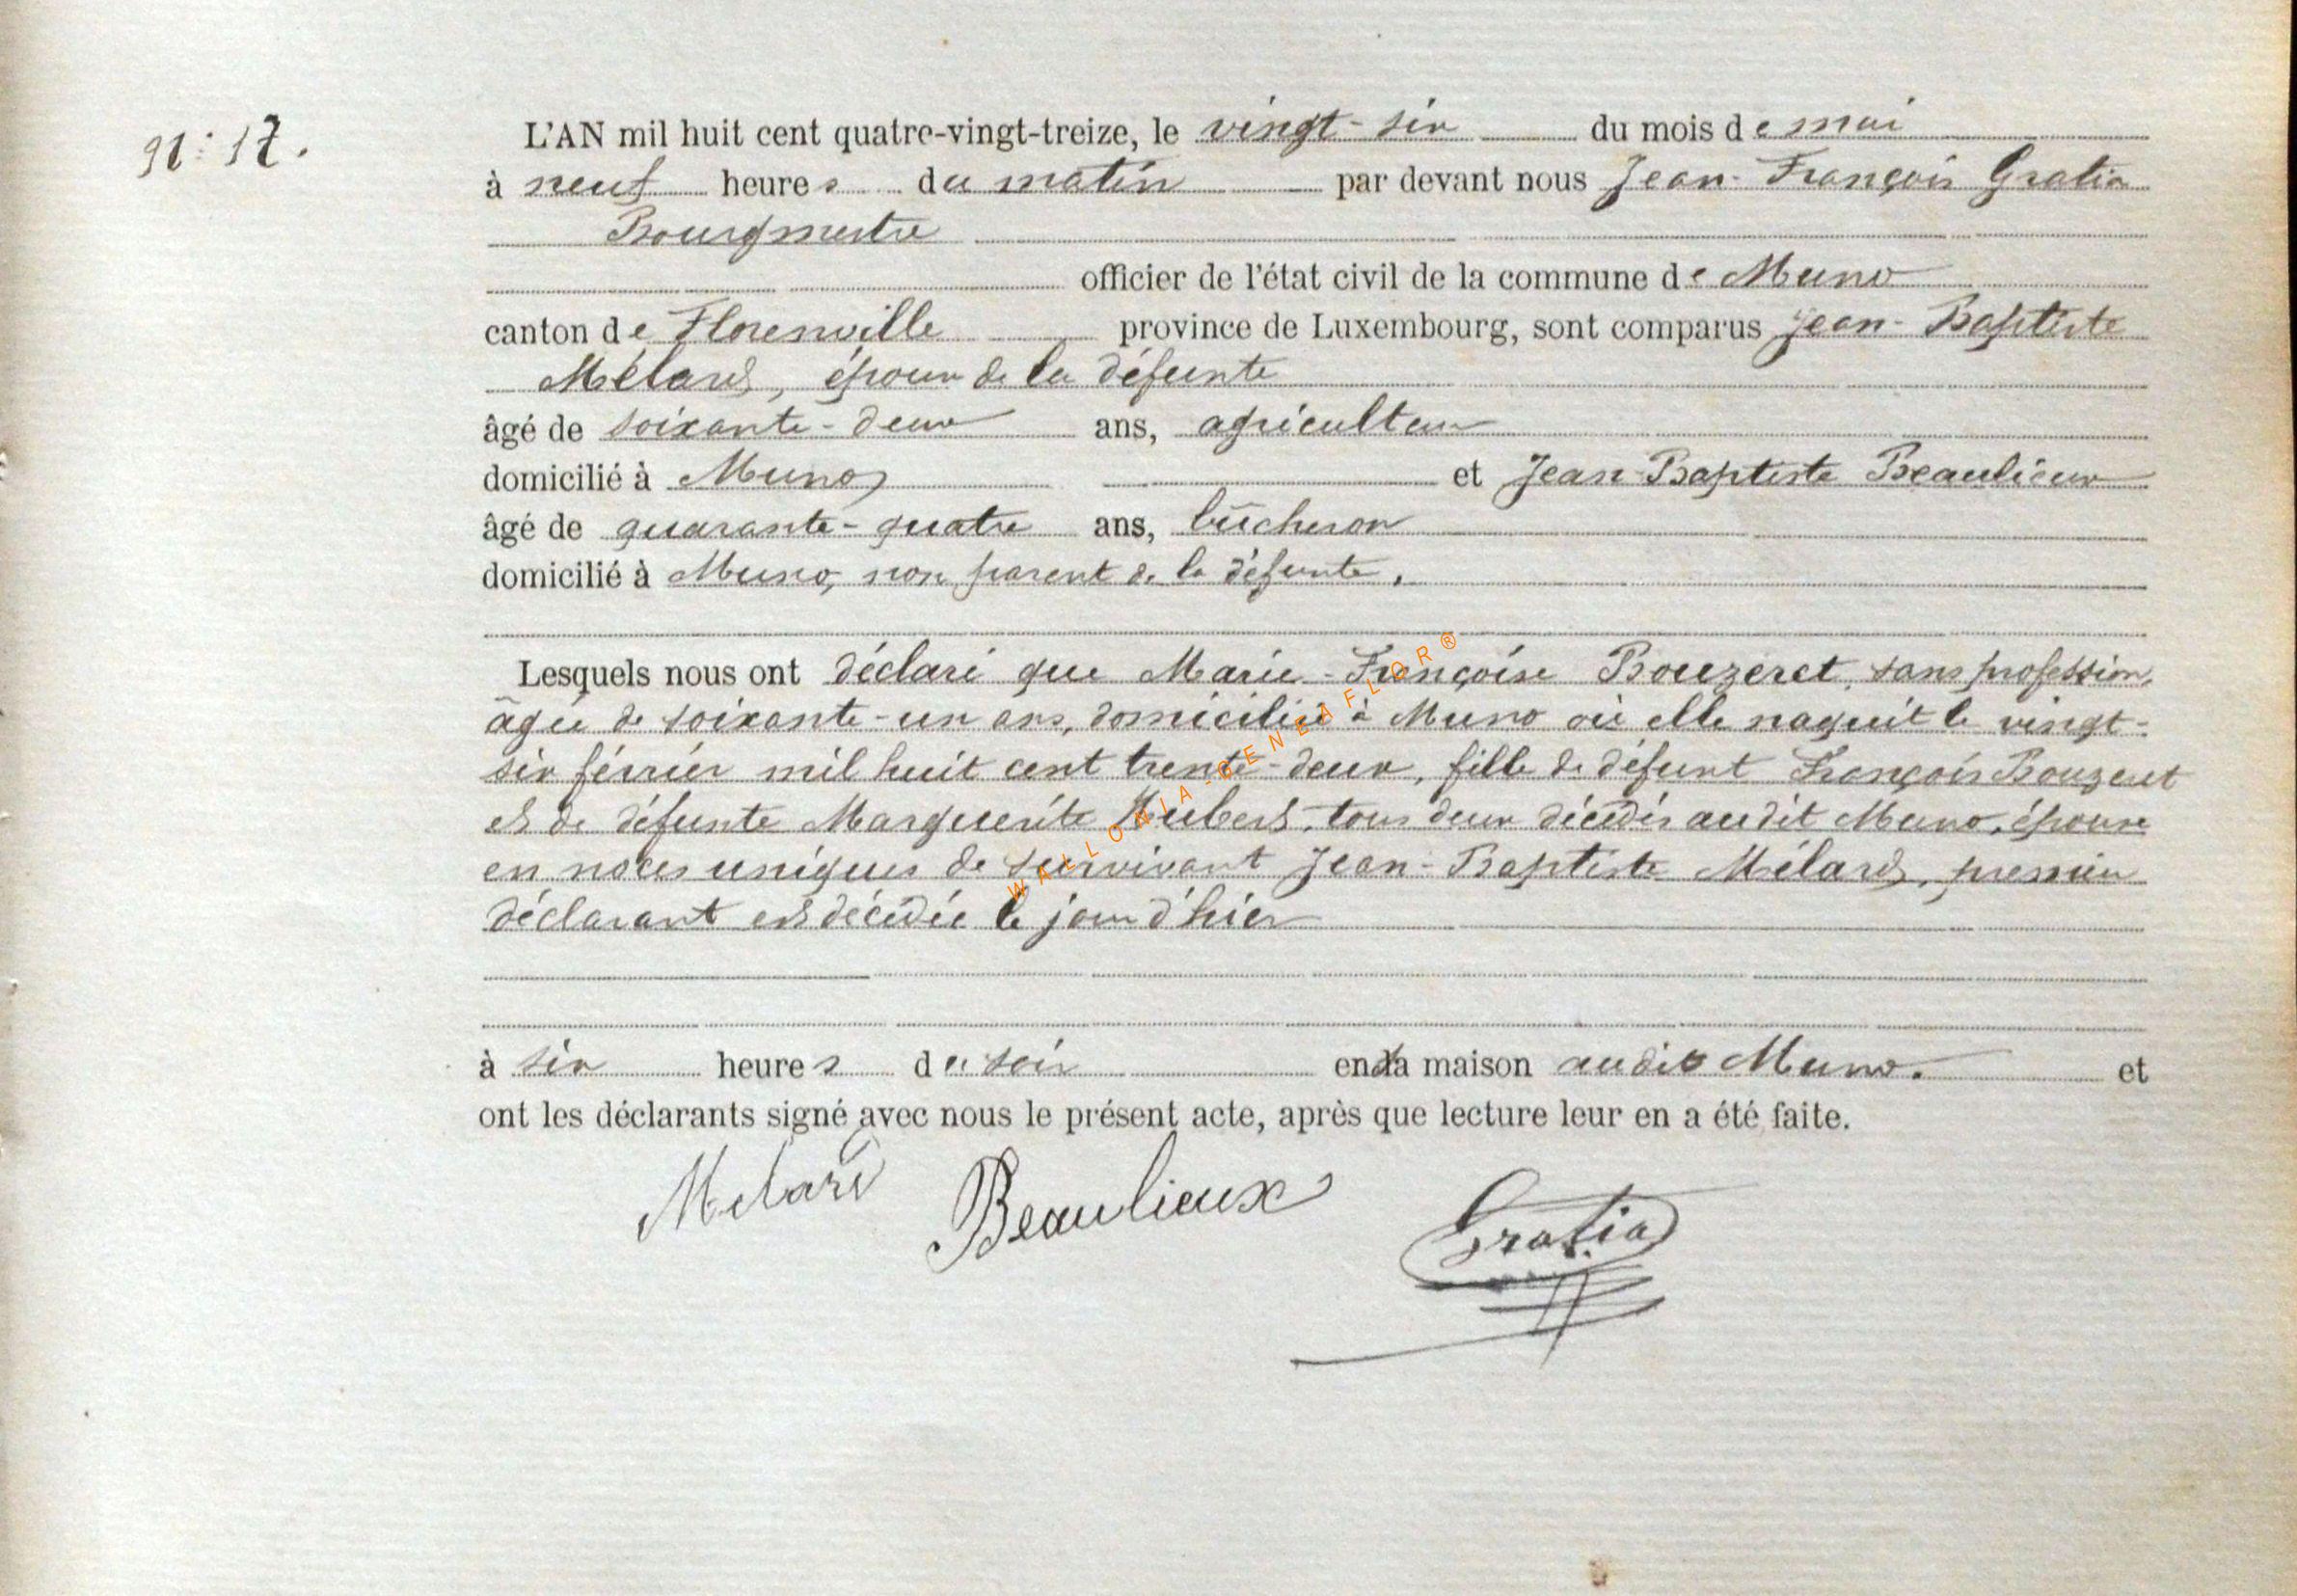 N°: 17.
L'AN mil huit cent quatre-vingt-treize, le vingt-six du mois de mai
à neuf heures du matin par devant nous Jean-François Gratia
Bourgmestre
officier de l'état civil de la commune de Muno
canton de Florenville province de Luxembourg, sont comparus Jean-Baptiste
Mélard, époux de la défunte
âgé de soixante-deux ans, agriculteur
domicilié à Muno, et Jean-Baptiste Beaulieux
âgé de quarante-quatre ans, bûcheron
domicilié à Muno, non parent de la défunte.
Lesquels nous ont déclaré que Marie-Françoise Bouzeret, sans profession,
âgée de soixante-un ans, domiciliée à Muno où elle naquit le vingt-
six février mil huit cent trente-deux, fille de défunt François Bouzeret
et de défunte Marguerite Hubert, tous deux décédés audit Muno, épouse
en noces uniques de survivant Jean-Baptiste Mélard, premier
déclarant est décédée le jour d'hier
à six heures du soir en sa maison audit Muno. et
ont les déclarants signé avec nous le présent acte, après que lecture leur en a été faite.
Melard Beaulieux Gratia
WALLONIA-GENEAFLOR®